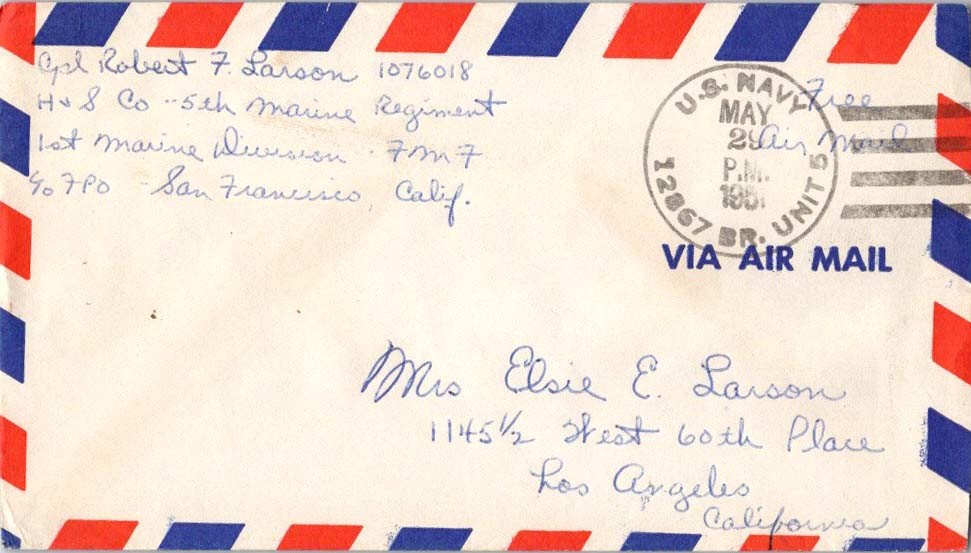 Cpl Robert F. Larson 1076018
H & S Co - 5th Marine Regiment
1st Marine Division - FMF
c/o FPO - San Francisco, Calif.
U.S. NAVY
MAY
29
P.M.
1951
12867 BR. UNIT 5
Free
Air Mail
VIA AIR MAIL
Mrs Elsie E. Larson
1145 1/2 West 60th Place
Los Angeles
California